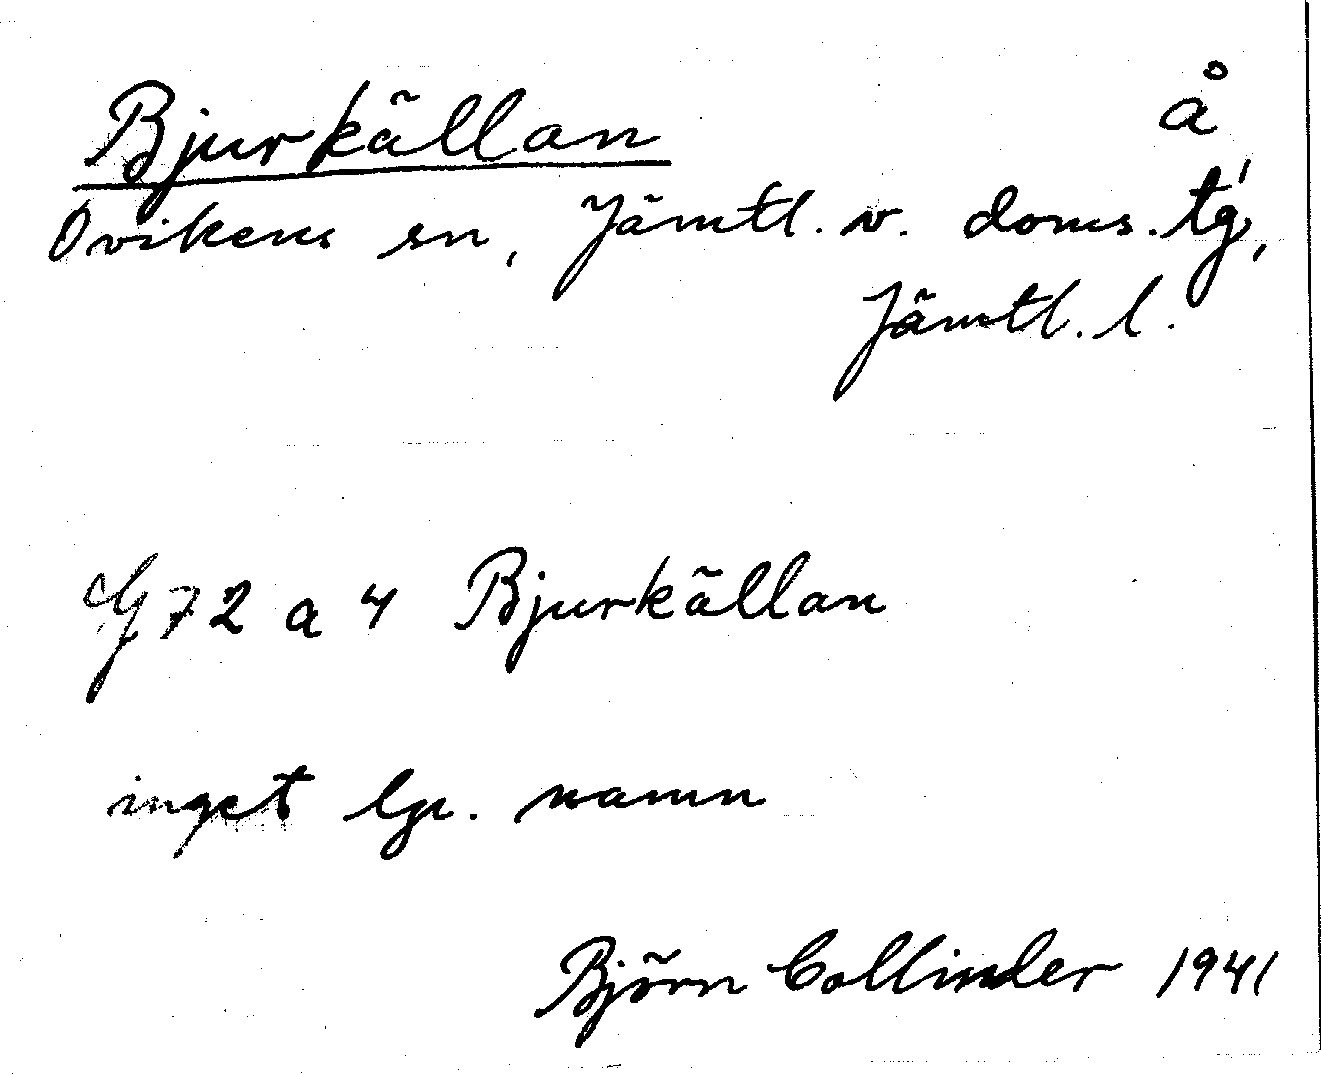 Bjurkällan å
Ovikens sn, Jämtl. v. doms. tg,
Jämtl. l.
G 72 a 4 Bjurkällan
inget lp. namn
Björn Collinder 1941